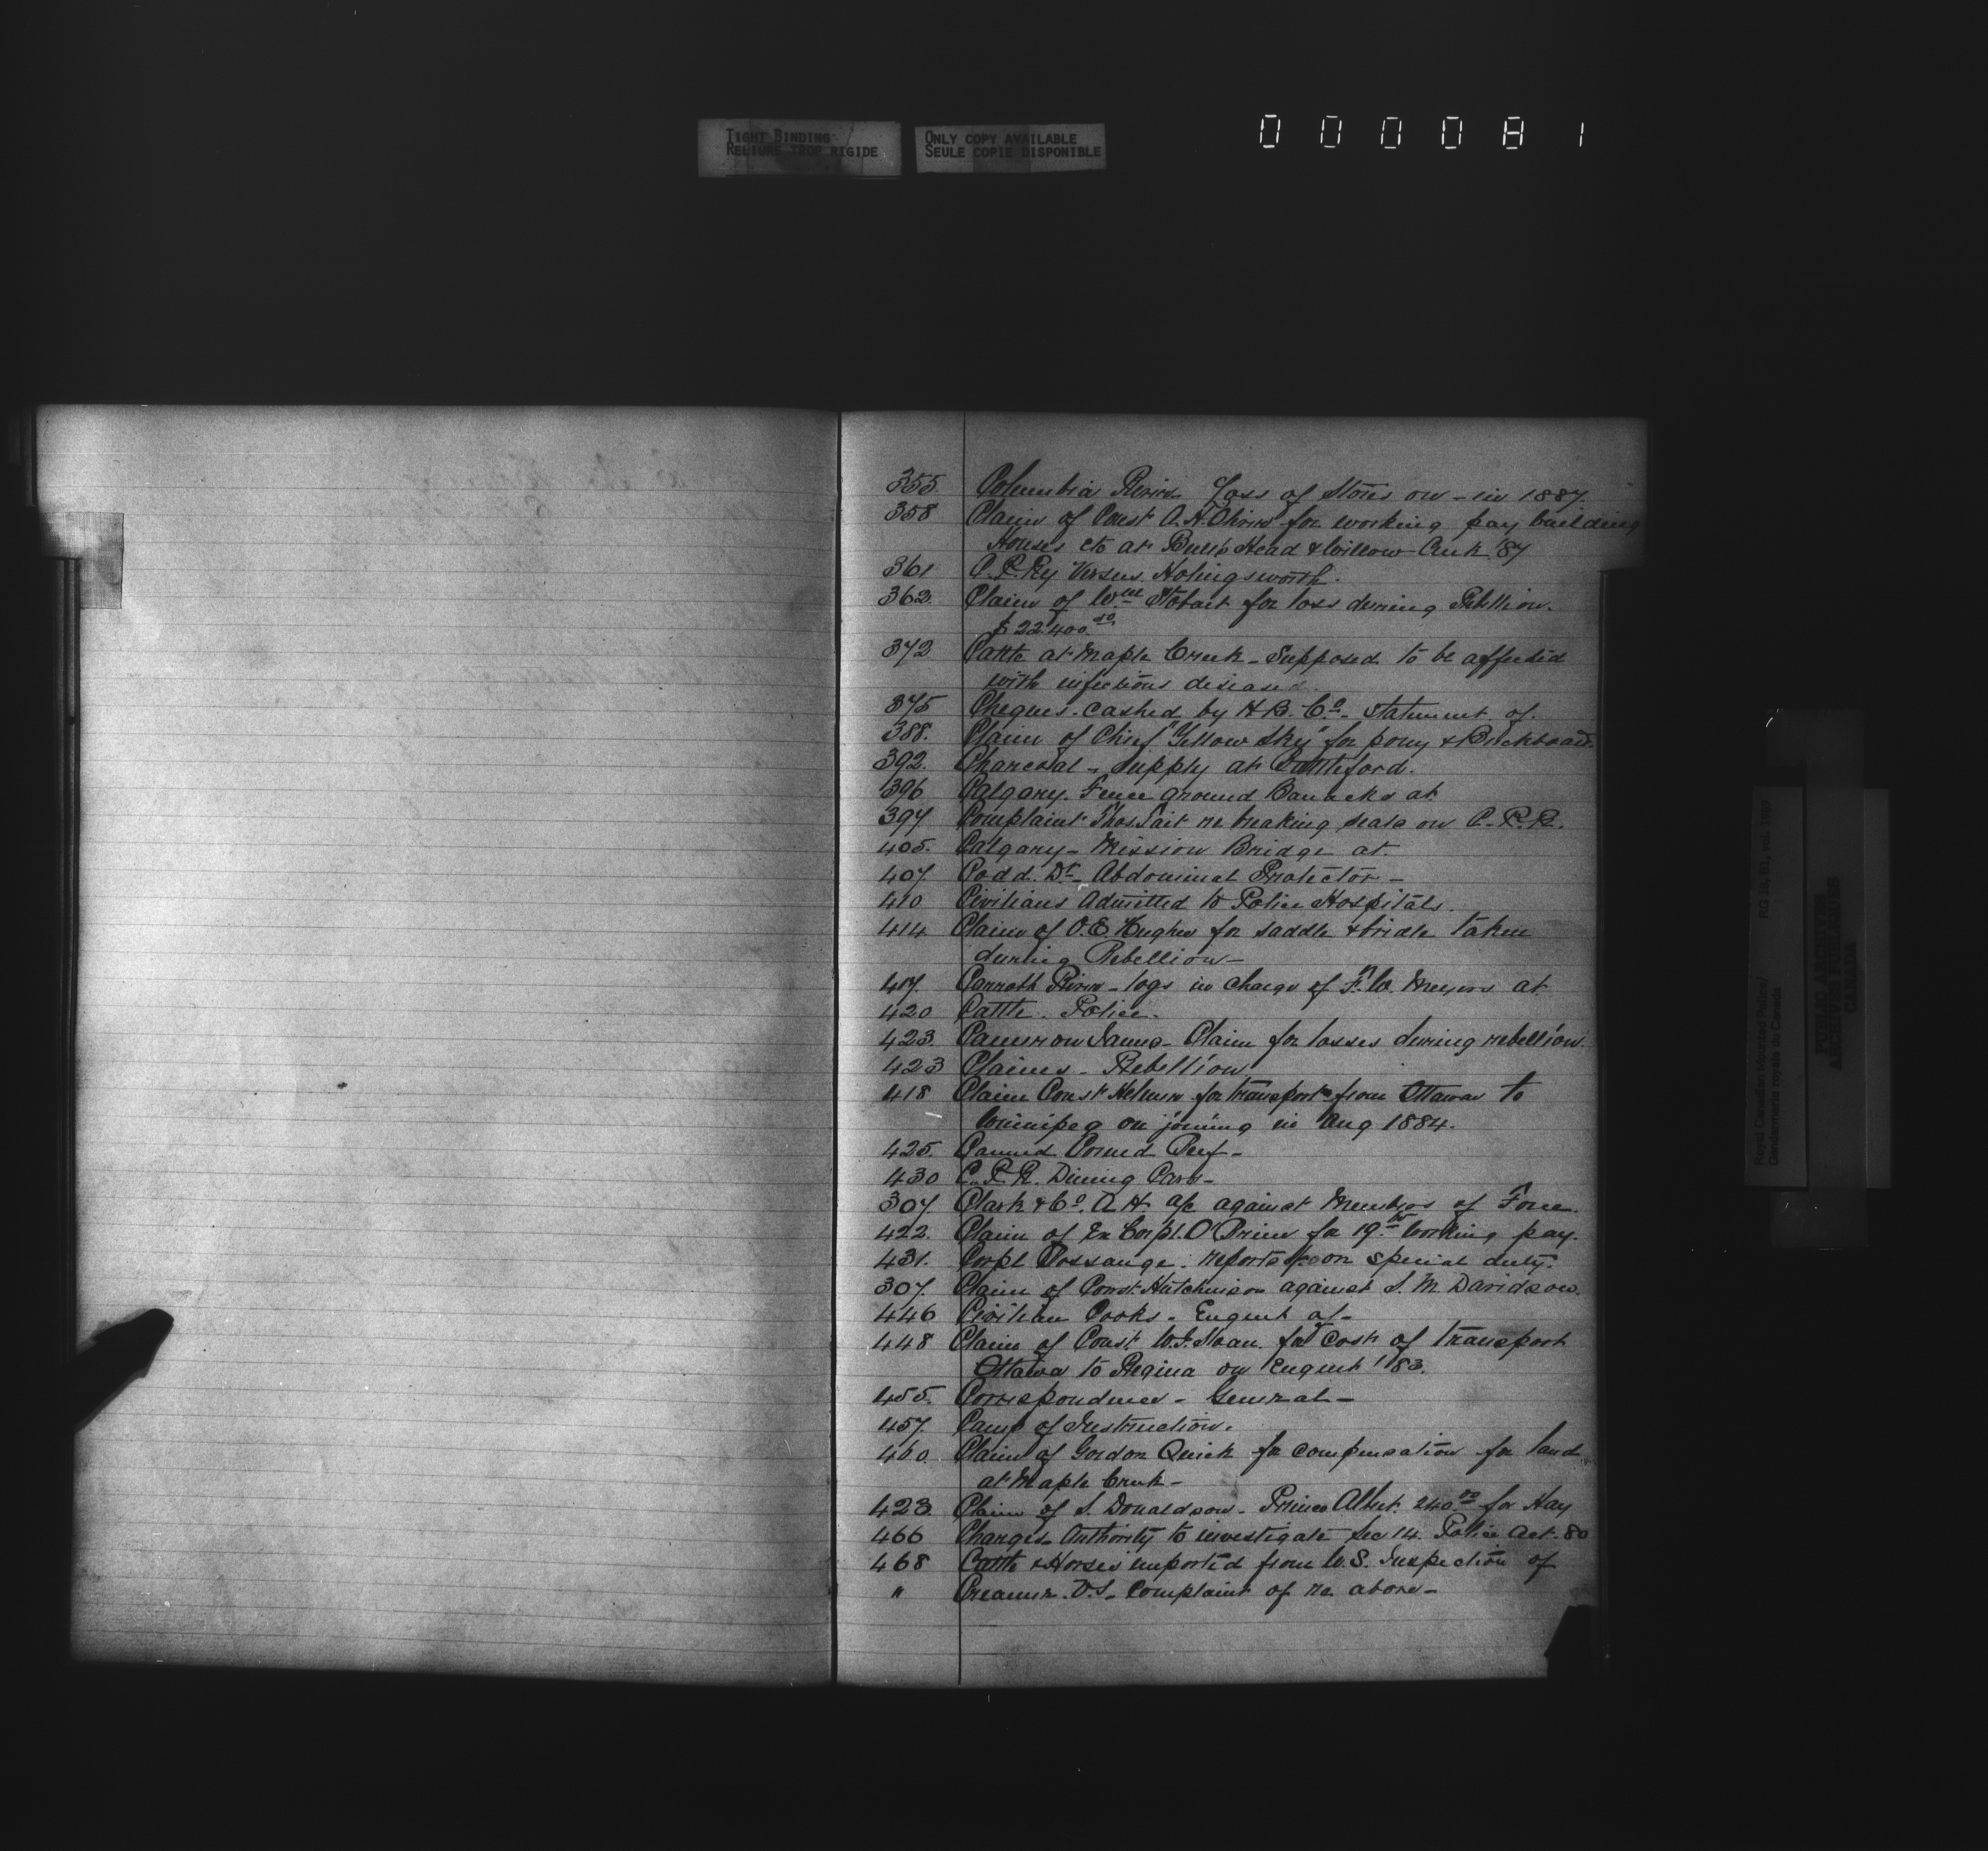 TIGHT BINDING
RELIURE TROP RIGIDE
ONLY COPY AVAILABLE
SEULE COPIE DISPONIBLE
000081
355. Columbia River Loss of Stores on - in 1887.
358 Claim of Const A. N. for working pay building
Houses etc at Bull's Head & Willow Creek '87
361 C. P. Ry Versus Holingsworth.
362. Claim of Wm Stobart for loss during Rebellion.
$22.400.
372 Cattle at Maple Creek - Supposed to be affected
with infectious disease
375 Cheques - cashed by H. B. Co - statement of.
388. Claim of Chief "Yellow Sky" for pony & Buckboard.
392. Charcoal - supply at Battleford.
396 Calgary. Fence around Barracks at
397 Complaint Thos. Tait re breaking seals on C. P. R.
405. Calgary - Mission Bridge at.
407. Codd. Dr - Abdominal Protector -
410 Civilians Admitted to Police Hospitals.
414 Claim of O. E. Hughes for saddle & bridle taken
during Rebellion -
417. Carroth River - logs in charge of F. W. Meyers at
420 Cattle. Police.
423. Cameron James - Claim for losses during rebellion.
423 Claims - Rebellion
418 Claim Const Helmer for transport from Ottawa to
Winnipeg on joining in Aug 1884.
425. Canned Corned Beef -
430 C. P. R. Dining Cars -
307. Clark & Co. A. H. a/c against Members of Force.
422. Claim of Ex Corpl. O'Brien for 19. working pay.
431. Corpl Dossange. reports on special duty.
307. Claim of Const. Hutchinson against S. M. Davidson.
446 Civilian Cooks. Engmt of -
448 Claim of Const W. J. Sloan. for cost of transport
Ottawa to Regina on Engmt '83.
455. Correspondence - General -
457. Camp of Instruction.
460. Claim of Gordon Quick for compensation for land
at Maple Creek -
423. Claim of S. Donaldson - Prince Albert. 240. for Hay
466 Charges. Authority to investigate Sec 14. Police Act. 80
468 Cattle & Horses imported from U. S. Inspection of
" Creamer. V. S. Complaint of re above -
Royal Canadian Mounted Police/
Gendarmerie royale du Canada
RG 18,
PUBLIC ARCHIVES
ARCHIVES PUBLIQUES
CANADA